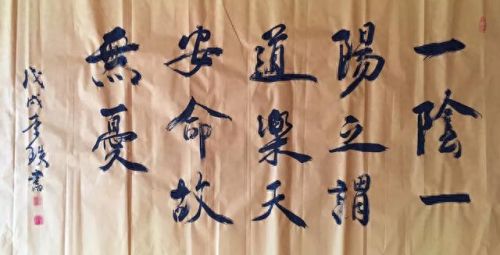 一陰一
陽之謂
道樂天
安命故
無憂
戊戌李珠書